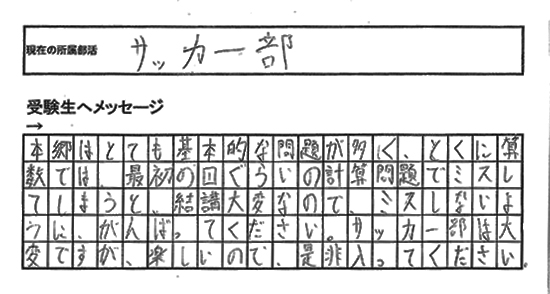 現在の所属部活 サッカー部
受験生へメッセージ
→
本郷はとても基本的な問題が多く、とくに算
数では、最初の四ぐらいの計算問題でミスし
てしまうと、結講大変なので、ミスしないよ
うに、がんばってください。サッカー部は大
変ですが、楽しいので、是非入ってください。